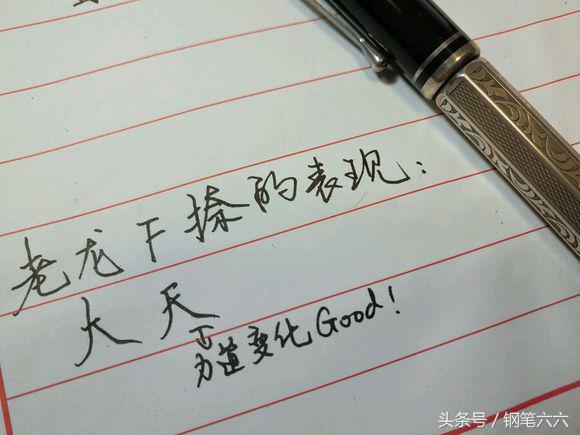 老龙F捺的表现：
大天
力道变化Good!
头条号 / 钢笔六六